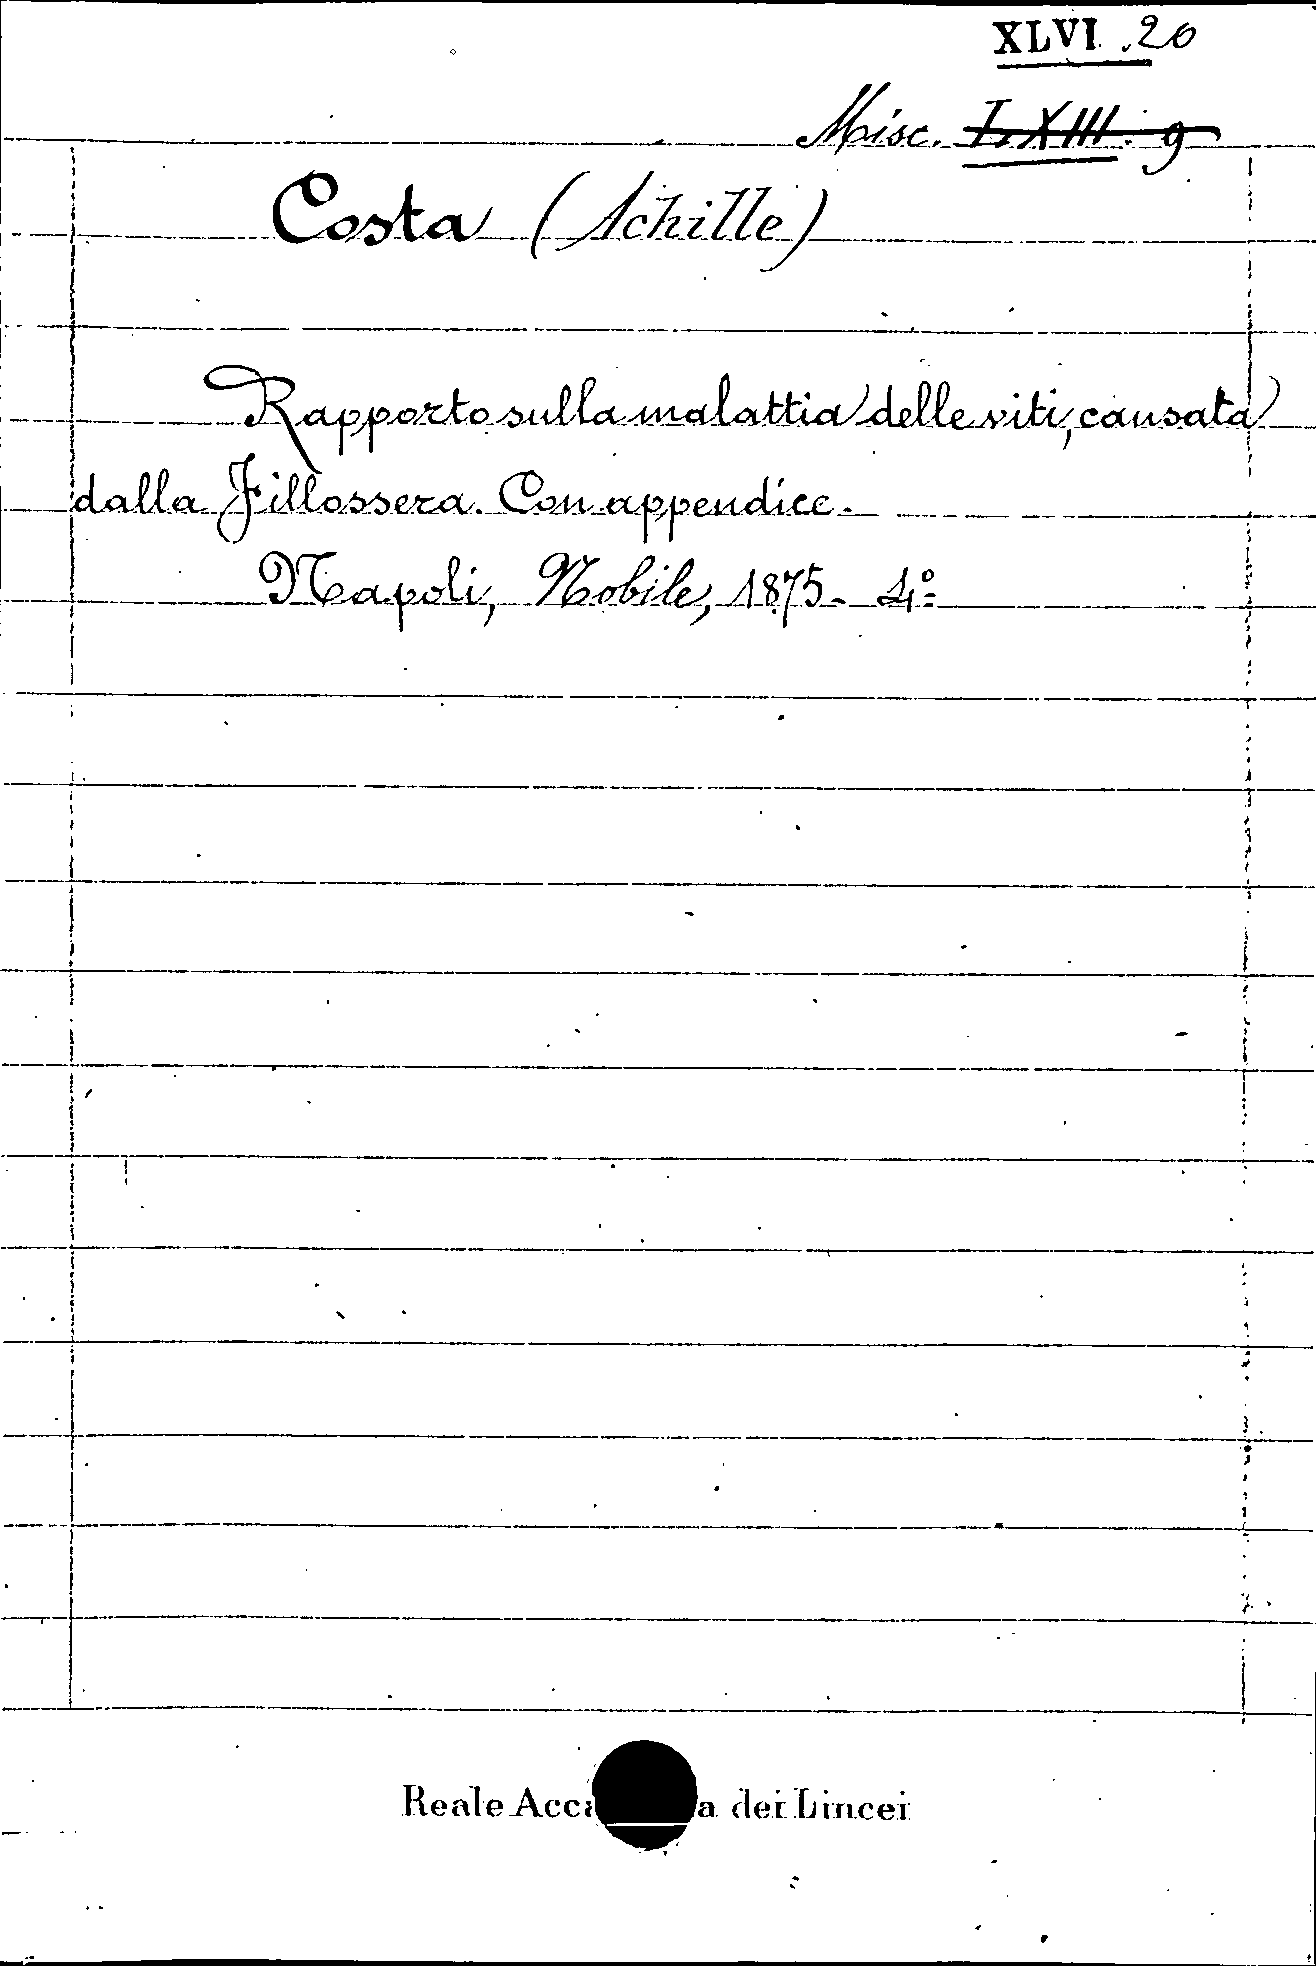 XLVI. 20
Misc. LXIII. 9
Costa (Achille)
Rapporto sulla malattia delle viti, causata
dalla Fillossera. Con appendice.
Napoli, Nobile, 1875. 4º
Reale Acca a dei Lincei